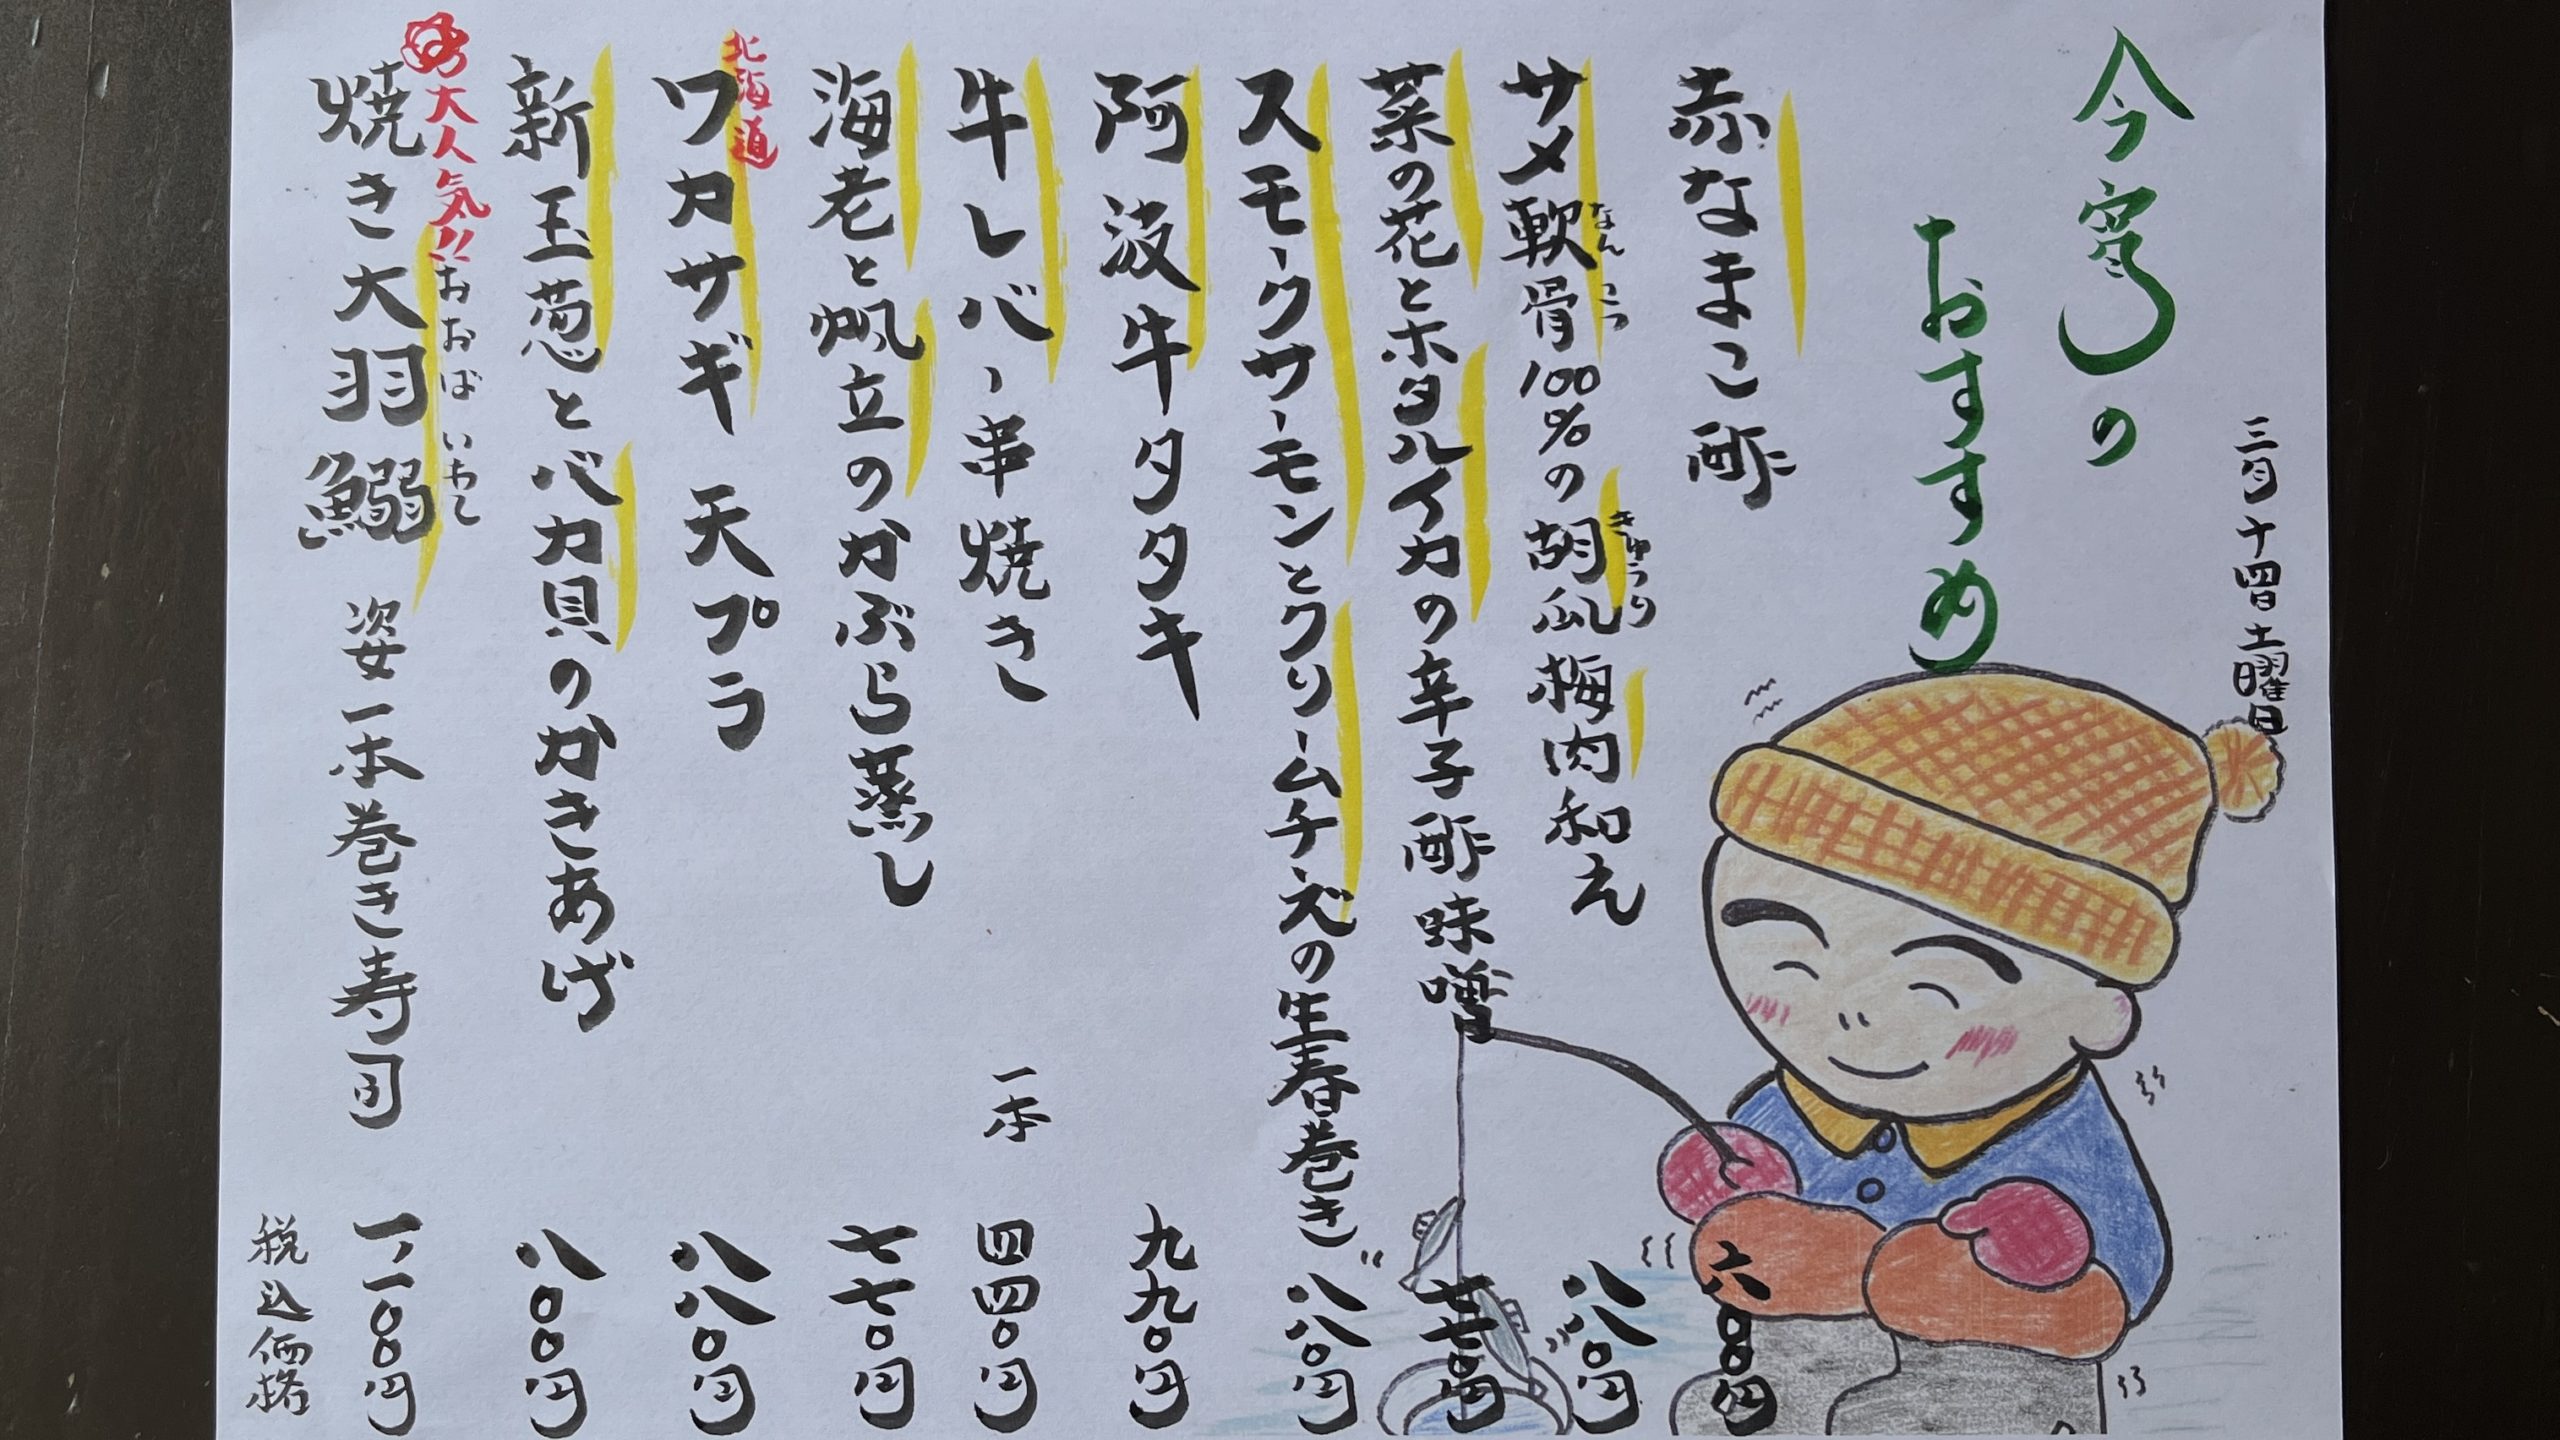 三月十四日土曜日
今宵の
おすすめ
赤なまこ酢 六〇〇円
サメ軟骨100%の胡瓜梅肉和え 八八〇円
なんこつ
きゅうり
菜の花とホタルイカの辛子酢味噌 七七〇円
スモークサーモンとクリームチーズの生春巻き 八八〇円
阿波牛タタキ 九九〇円
牛レバー串焼き 一本 四四〇円
海老と帆立のかぶら蒸し 七七〇円
北海道
ワカサギ 天プラ 八八〇円
新玉葱とバカ貝のかきあげ 八〇〇円
大人気!!
おおばいわし
焼き大羽鰯 姿一本巻き寿司 一、一〇〇円
税込価格